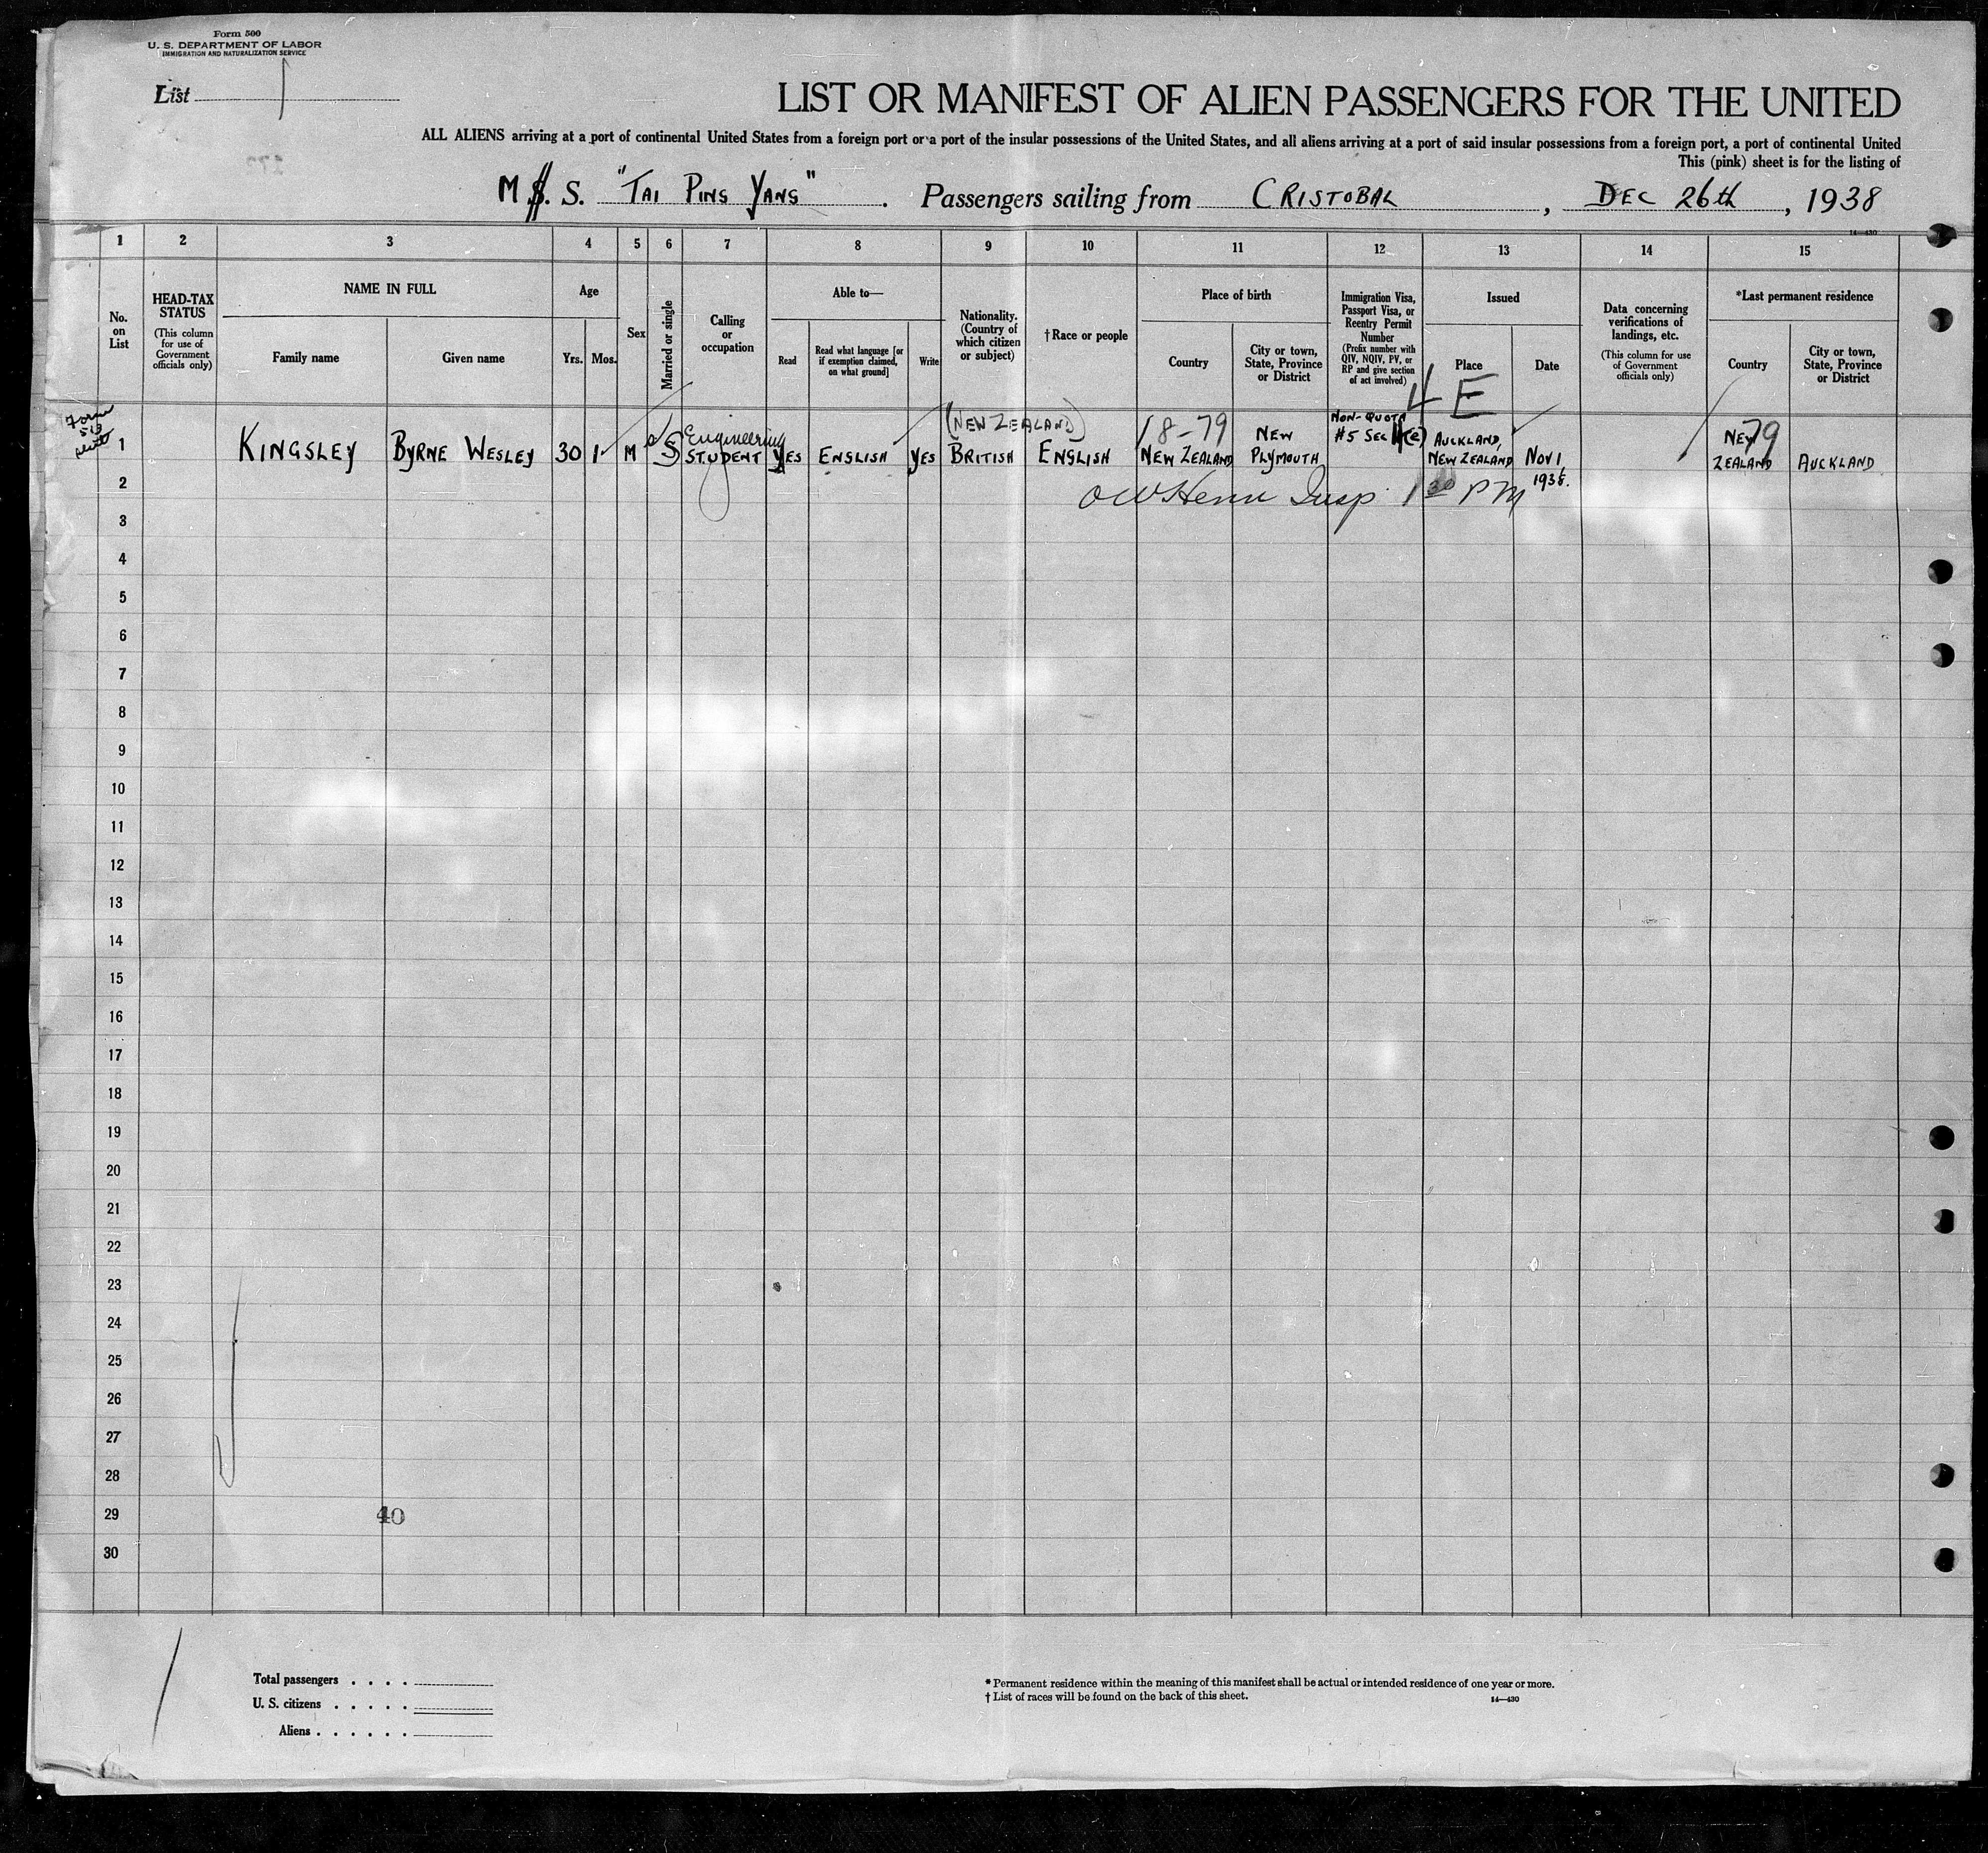 Form 500
U. S. DEPARTMENT OF LABOR
IMMIGRATION AND NATURALIZATION SERVICE
List 1
LIST OR MANIFEST OF ALIEN PASSENGERS FOR THE UNITED
ALL ALIENS arriving at a port of continental United States from a foreign port or a port of the insular possessions of the United States, and all aliens arriving at a port of said insular possessions from a foreign port, a port of continental United
This (pink) sheet is for the listing of
M S. S. "TAI PING YANG". Passengers sailing from CRISTOBAL, DEC 26th, 1938
14—430
1 2 3 4 5 6 7 8 9 10 11 12 13 14 15
No. on List
HEAD-TAX STATUS
(This column for use of Government officials only)
NAME IN FULL
Family name Given name
Age
Yrs. Mos.
Sex
Married or single
Calling or occupation
Able to—
Read
Read what language [or if exemption claimed, on what ground]
Write
Nationality. (Country of which citizen or subject)
† Race or people
Place of birth
Country
City or town, State, Province or District
Immigration Visa, Passport Visa, or Reentry Permit Number
(Prefix number with QIV, NQIV, PV, or RP and give section of act involved)
Issued
Place Date
Data concerning verifications of landings, etc.
(This column for use of Government officials only)
*Last permanent residence
Country
City or town, State, Province or District
4 E
Form
513
(NEW ZEALAND) 18-79 NON-QUOTA
1 KINGSLEY BYRNE WESLEY 30 1 M S Engineering STUDENT YES ENGLISH YES BRITISH ENGLISH NEW ZEALAND NEW PLYMOUTH #5 SEC 4(e) AUCKLAND, NEW ZEALAND NOV 1, 1938. NEW ZEALAND 79 AUCKLAND
2 Insp. 1 30 PM
3
4
5
6
7
8
9
10
11
12
13
14
15
16
17
18
19
20
21
22
23
24
25
26
27
28
29 40
30
Total passengers . . . .
U. S. citizens . . . . .
Aliens . . . . . .
* Permanent residence within the meaning of this manifest shall be actual or intended residence of one year or more.
† List of races will be found on the back of this sheet.
14—430